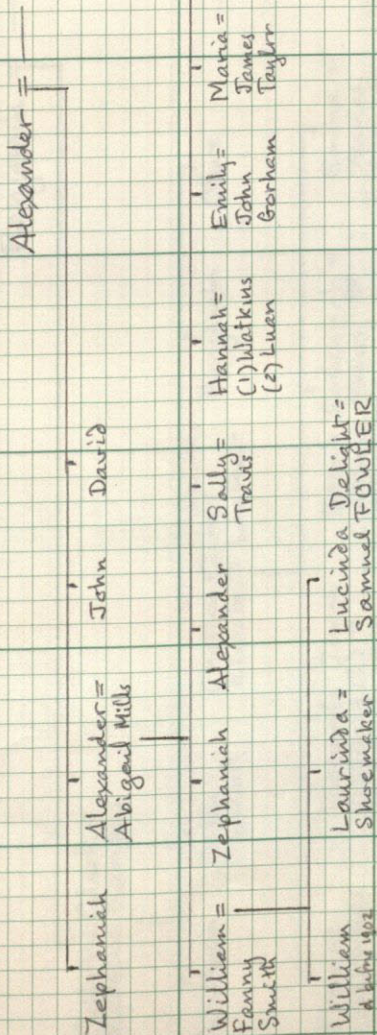 Alexander =
Zephaniah
Alexander =
Abigail Mills
John
David
William =
Fanny
Smith
Zephaniah
Alexander
Sally =
Travis
Hannah =
(1) Watkins
(2) Luan
Emily =
John
Gorham
Maria =
James
Taylor
William
d before 1902
Laurinda =
Shoemaker
Lucinda Delight =
Samuel FOWLER